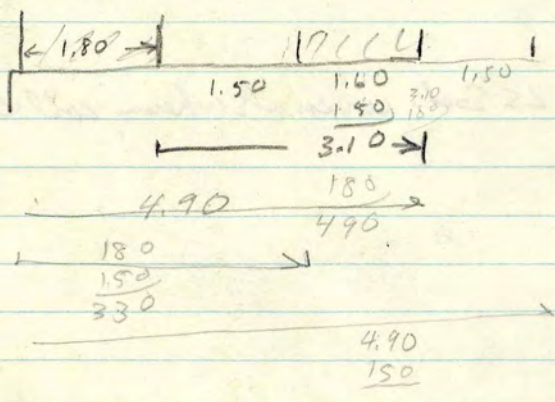 1.80
1.50 1.60 1.50
1.50
3.10
180
4.90
490
180
1.50
330
4.90
150